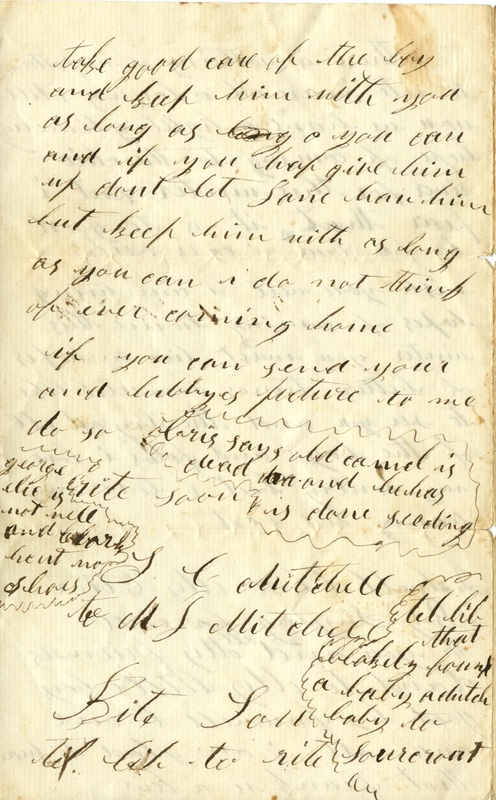 take good care of the boy
and keep him with you
as long as long o you can
and if you haf give him
up dont let Sam hav him
but keep him with as long
as you can i do not think
of ever coming home
if you can send your
and lubbyes picture to me
do so
doris says old camel is
dead and he has
is done seeding
george
elie is
not well
and
hent no
shoes
rite soon
S C Mitchell
to M S Mitchell
tel lib
that
blakely foun
a baby a dutch
baby to
Sourcrout
Rite Soon
tel lib to rite